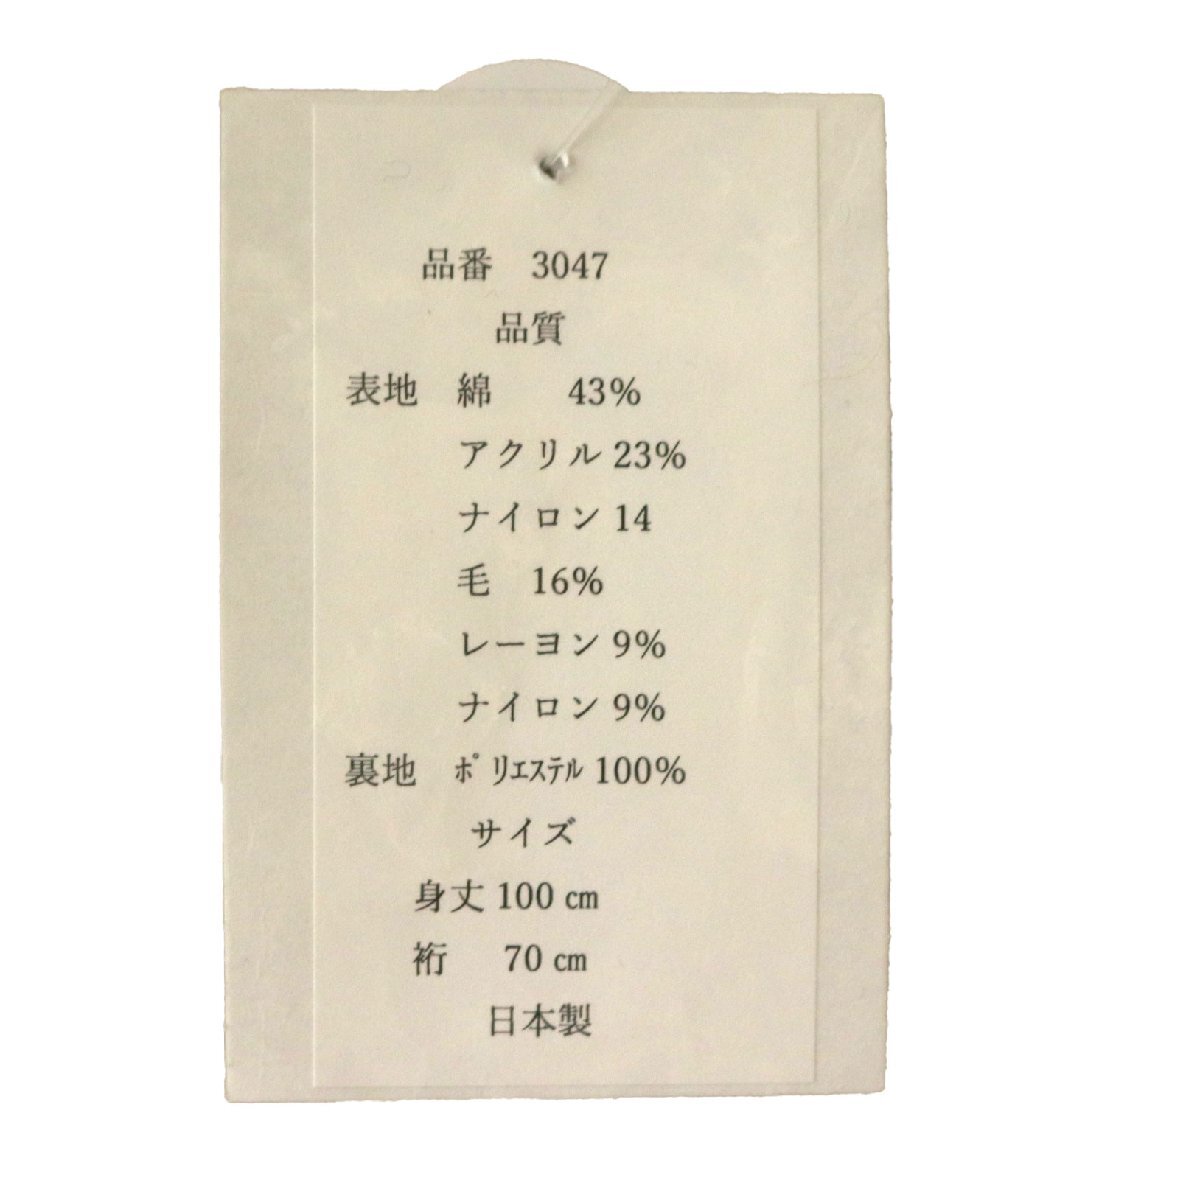 品番　3047
品質
表地　綿　　43%
アクリル 23%
ナイロン 14
毛　16%
レーヨン 9%
ナイロン 9%
裏地　ﾎﾟﾘｴｽﾃﾙ 100%
サイズ
身丈 100 ㎝
裄　 70 ㎝
日本製